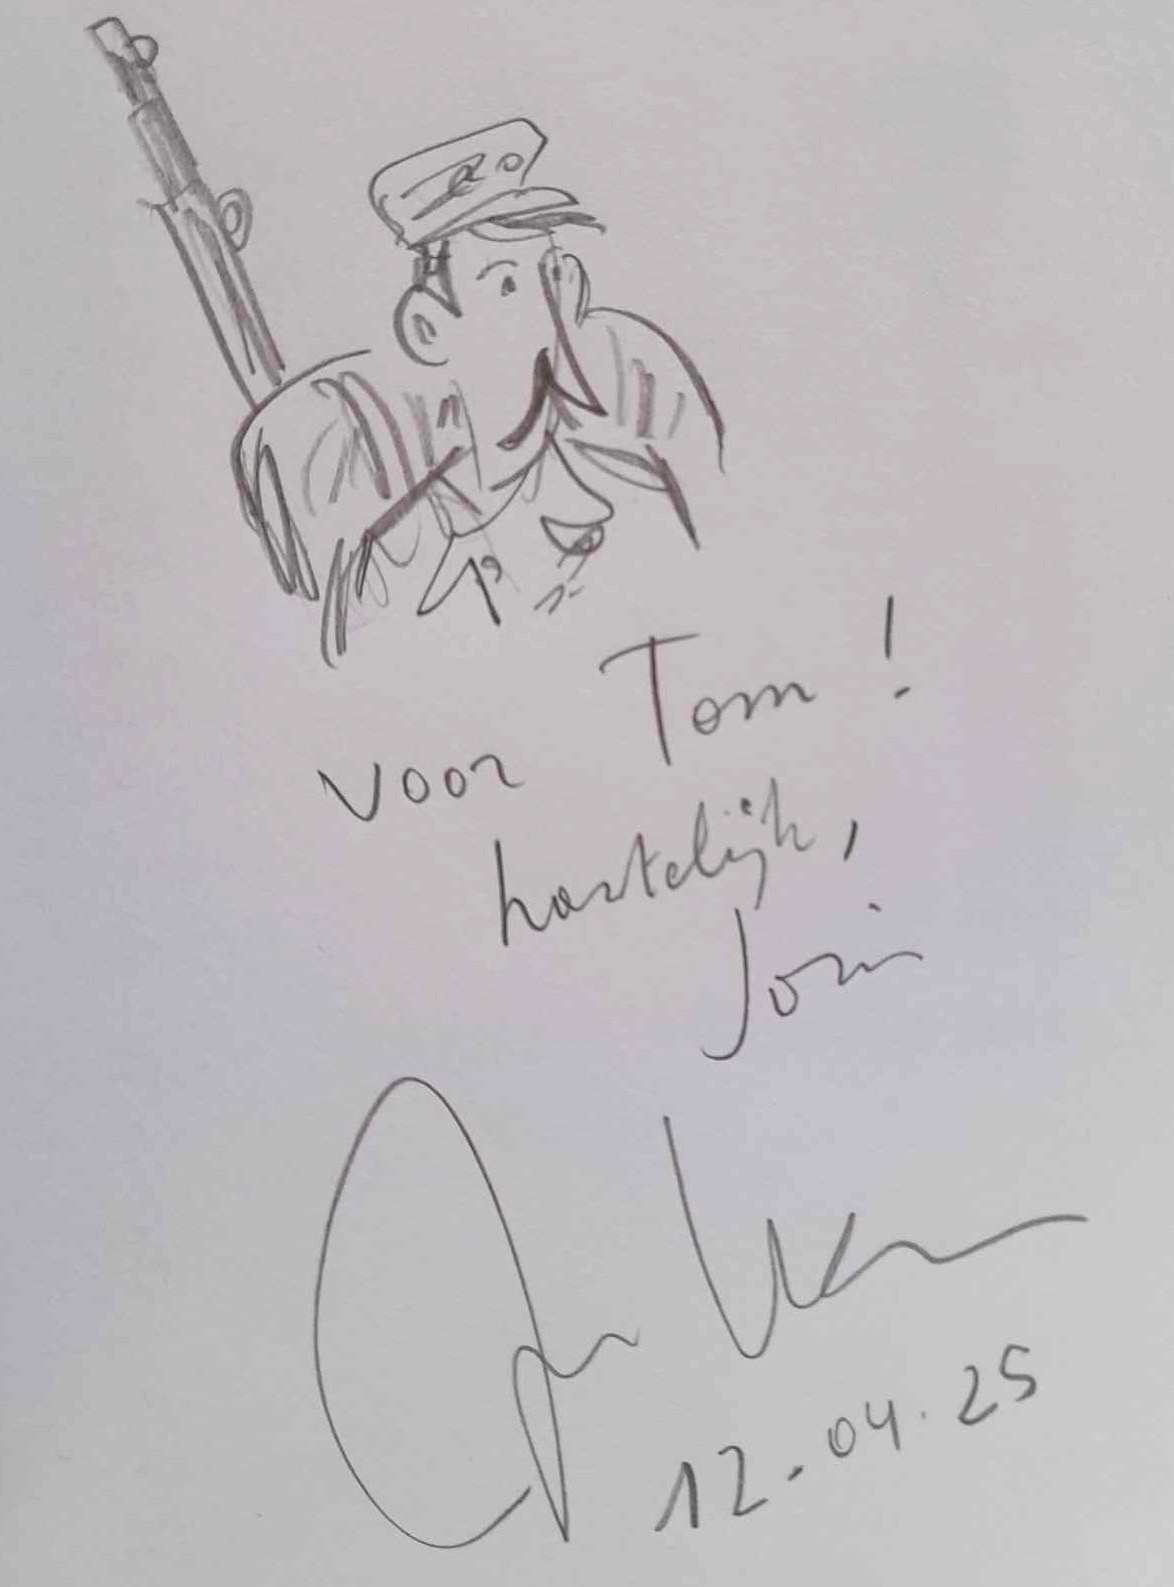 voor Tom!
hartelijk,
Joris
12.04.25